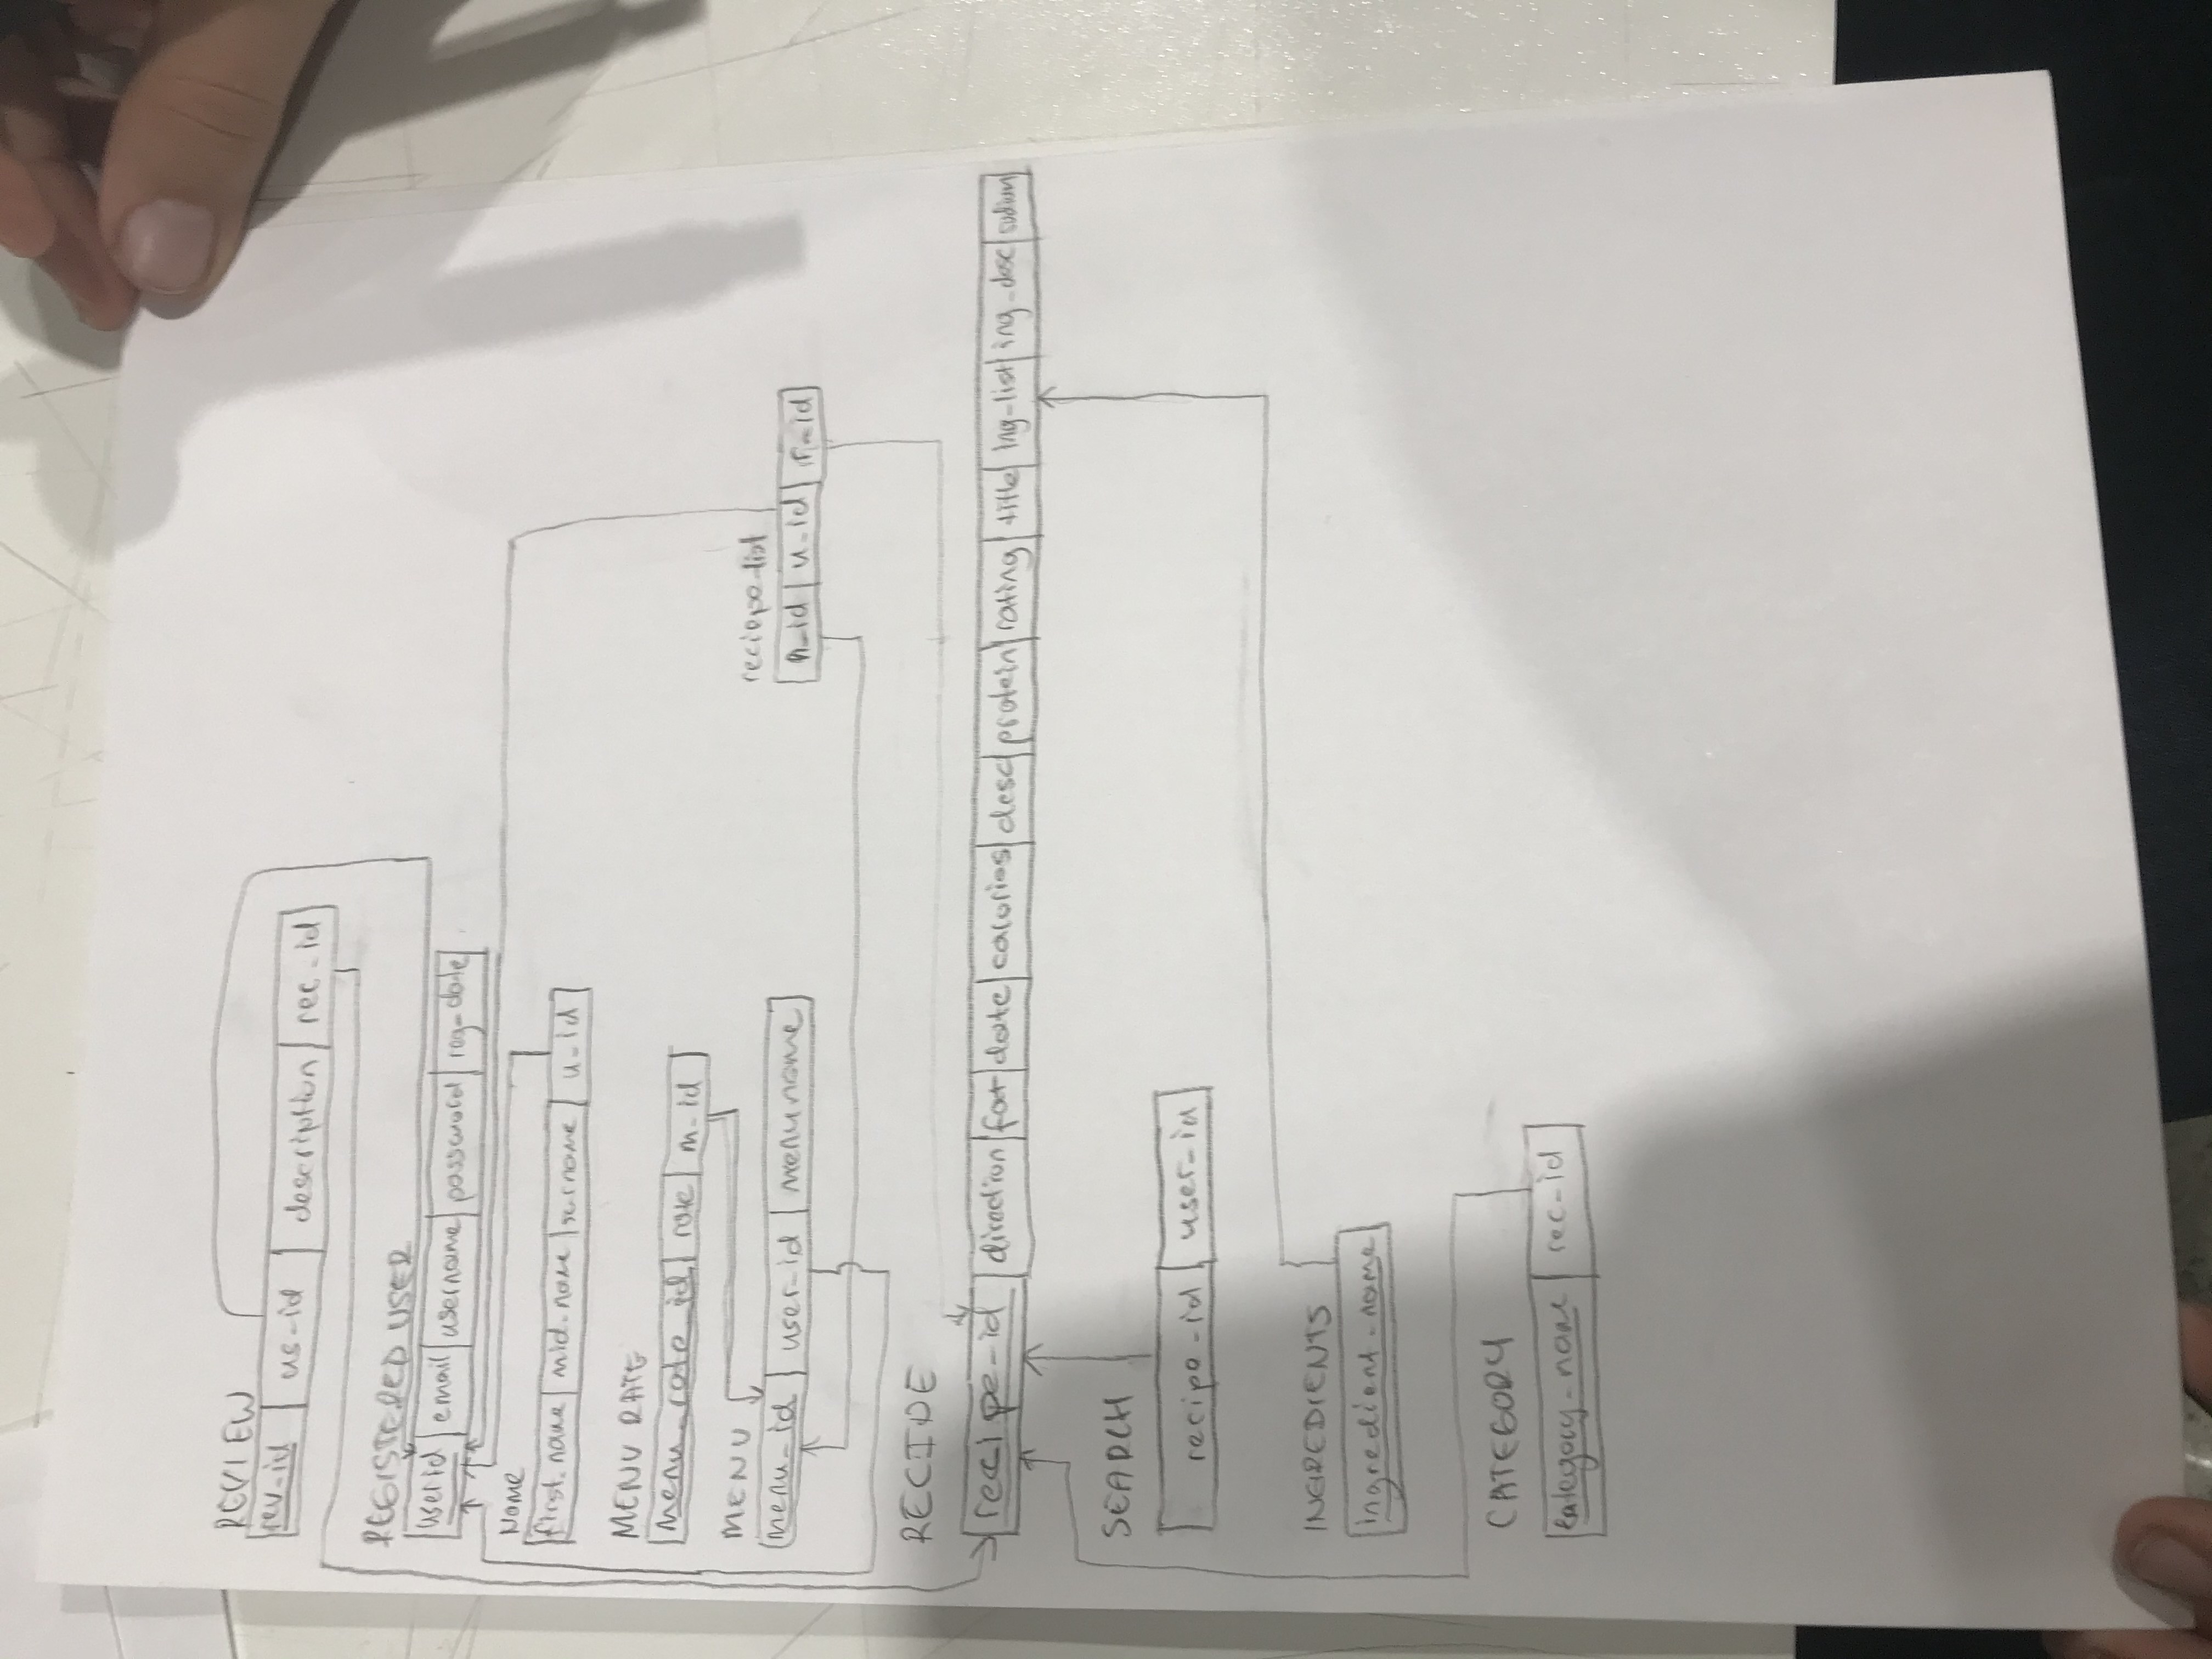 REVIEW
rev-id us-id description rec-id
REGISTERED USER
userid email username password reg-date
Name
first.name mid.name surname u-id
MENU RATE
menu_rate_id rate m-id
MENU
menu-id user-id menuname
reciepe-list
m-id u-id r-id
RECIPE
recipe-id direction fat date calories desc protein rating title ing-list ing-desc sodium
SEARCH
recipe-id user-id
INGREDIENTS
ingredient-name
CATEGORY
category-name rec-id